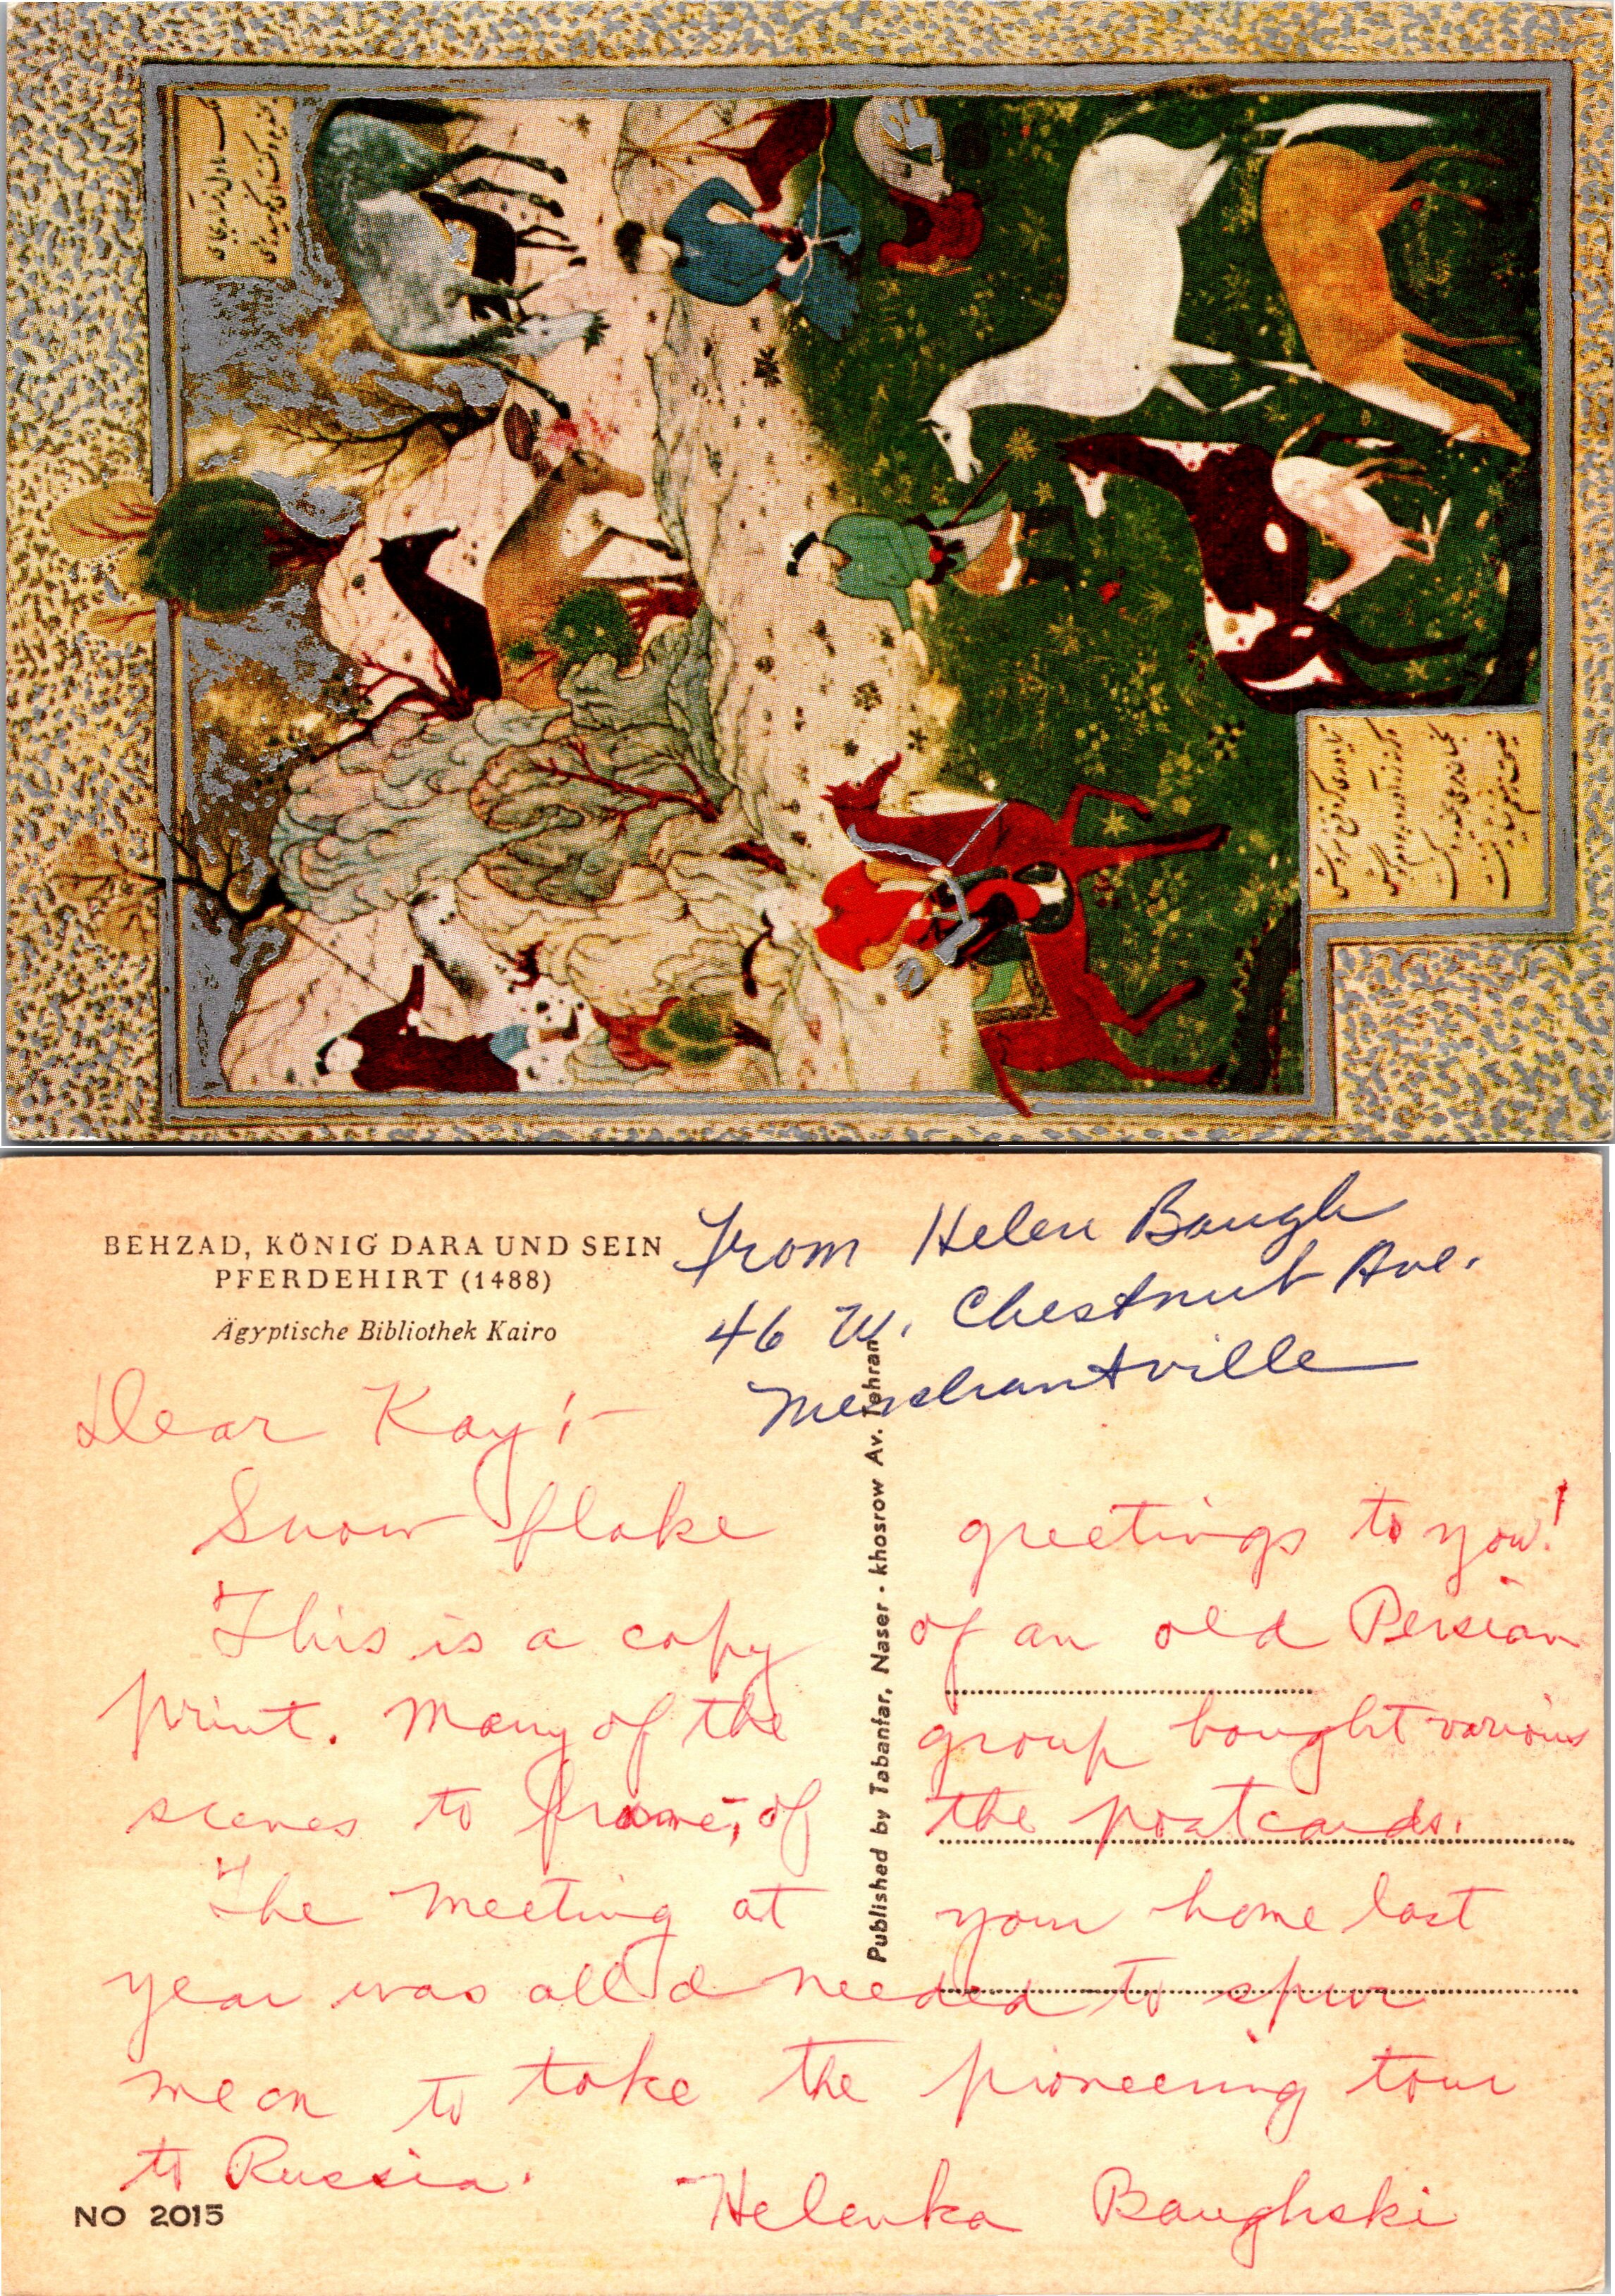 BEHZAD, KÖNIG DARA UND SEIN
PFERDEHIRT (1488)
Ägyptische Bibliothek Kairo
From Helen Baugh
46 W. Chestnut Ave.
Merchantville
Dear Kay:-
Snow flake greetings to you!
This is a copy of an old Persian
print. Many of the group bought various
scenes to frame, of the postcards.
The meeting at your home last
year was all I needed to spur
me on to take the pioneering tour
to Russia.
Helenka Baughski
NO 2015
Published by Tabanfar, Naser - khosrow Av. Tehran